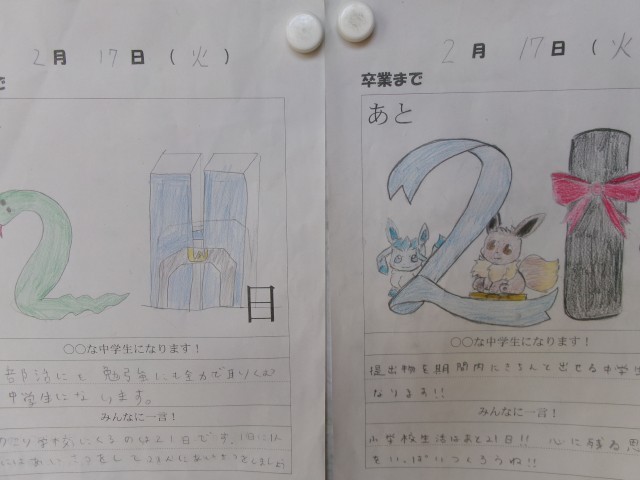 2月 17日(火)
で
2
日
〇〇な中学生になります！
部活にも勉強にも全力で取りくむ
中学生になります。
みんなに一言！
小学校にくるのは21日です。1日に1人
2月 17日(火
卒業まで
あと
21
〇〇な中学生になります！
提出物を期間内にきちんと出せる中学生
なります!!
みんなに一言！
小学校生活はあと21日!! 心に残る思
をいっぱいつくろうね!!